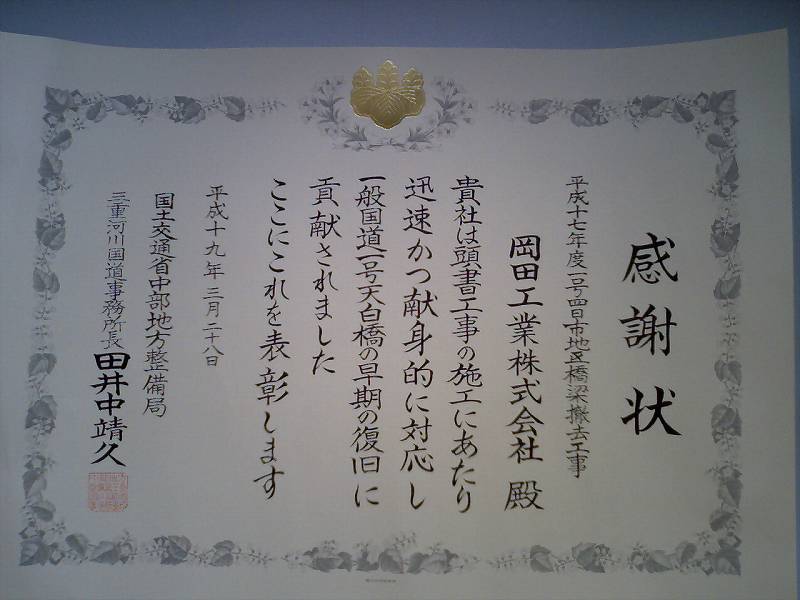 感謝状
平成十七年度一号四日市地区橋梁撤去工事
岡田工業株式会社 殿
貴社は頭書工事の施工にあたり
迅速かつ献身的に対応し
一般国道一号天白橋の早期の復旧に
貢献されました
ここにこれを表彰します
平成十九年三月二十八日
国土交通省中部地方整備局
三重河川国道事務所長 田井中靖久